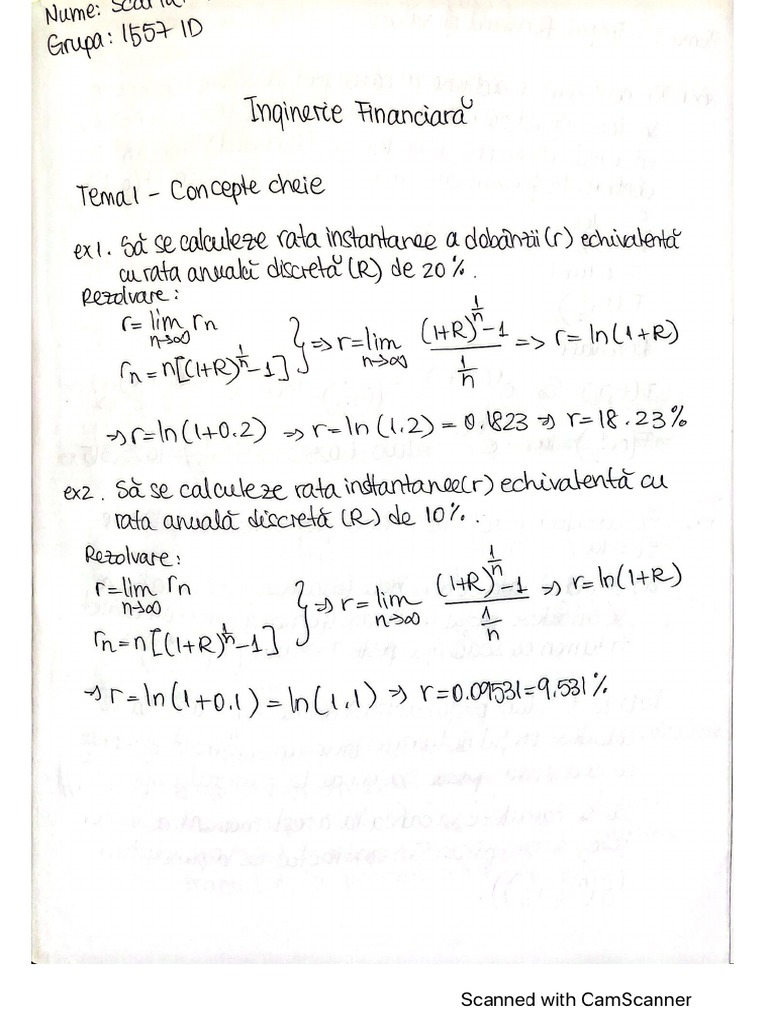 Nume:
Grupa: 1557 ID
Inginerie Financiară
Tema1 - Concepte cheie
ex1. Să se calculeze rata instantanee a dobânzii (r) echivalentă
cu rata anuală discretă (R) de 20%.
Rezolvare:
r = lim n→∞ rn
rn = n[(1+R)^(1/n) - 1] } => r = lim n→∞ ((1+R)^(1/n) - 1)/(1/n) => r = ln(1+R)
=> r = ln(1+0.2) => r = ln(1.2) = 0.1823 => r = 18.23%
ex2. Să se calculeze rata instantanee(r) echivalentă cu
rata anuală discretă (R) de 10%.
Rezolvare:
r = lim n→∞ rn
rn = n[(1+R)^(1/n) - 1] } => r = lim n→∞ ((1+R)^(1/n) - 1)/(1/n) => r = ln(1+R)
=> r = ln(1+0.1) = ln(1.1) => r = 0.09531 = 9.531%
Scanned with CamScanner